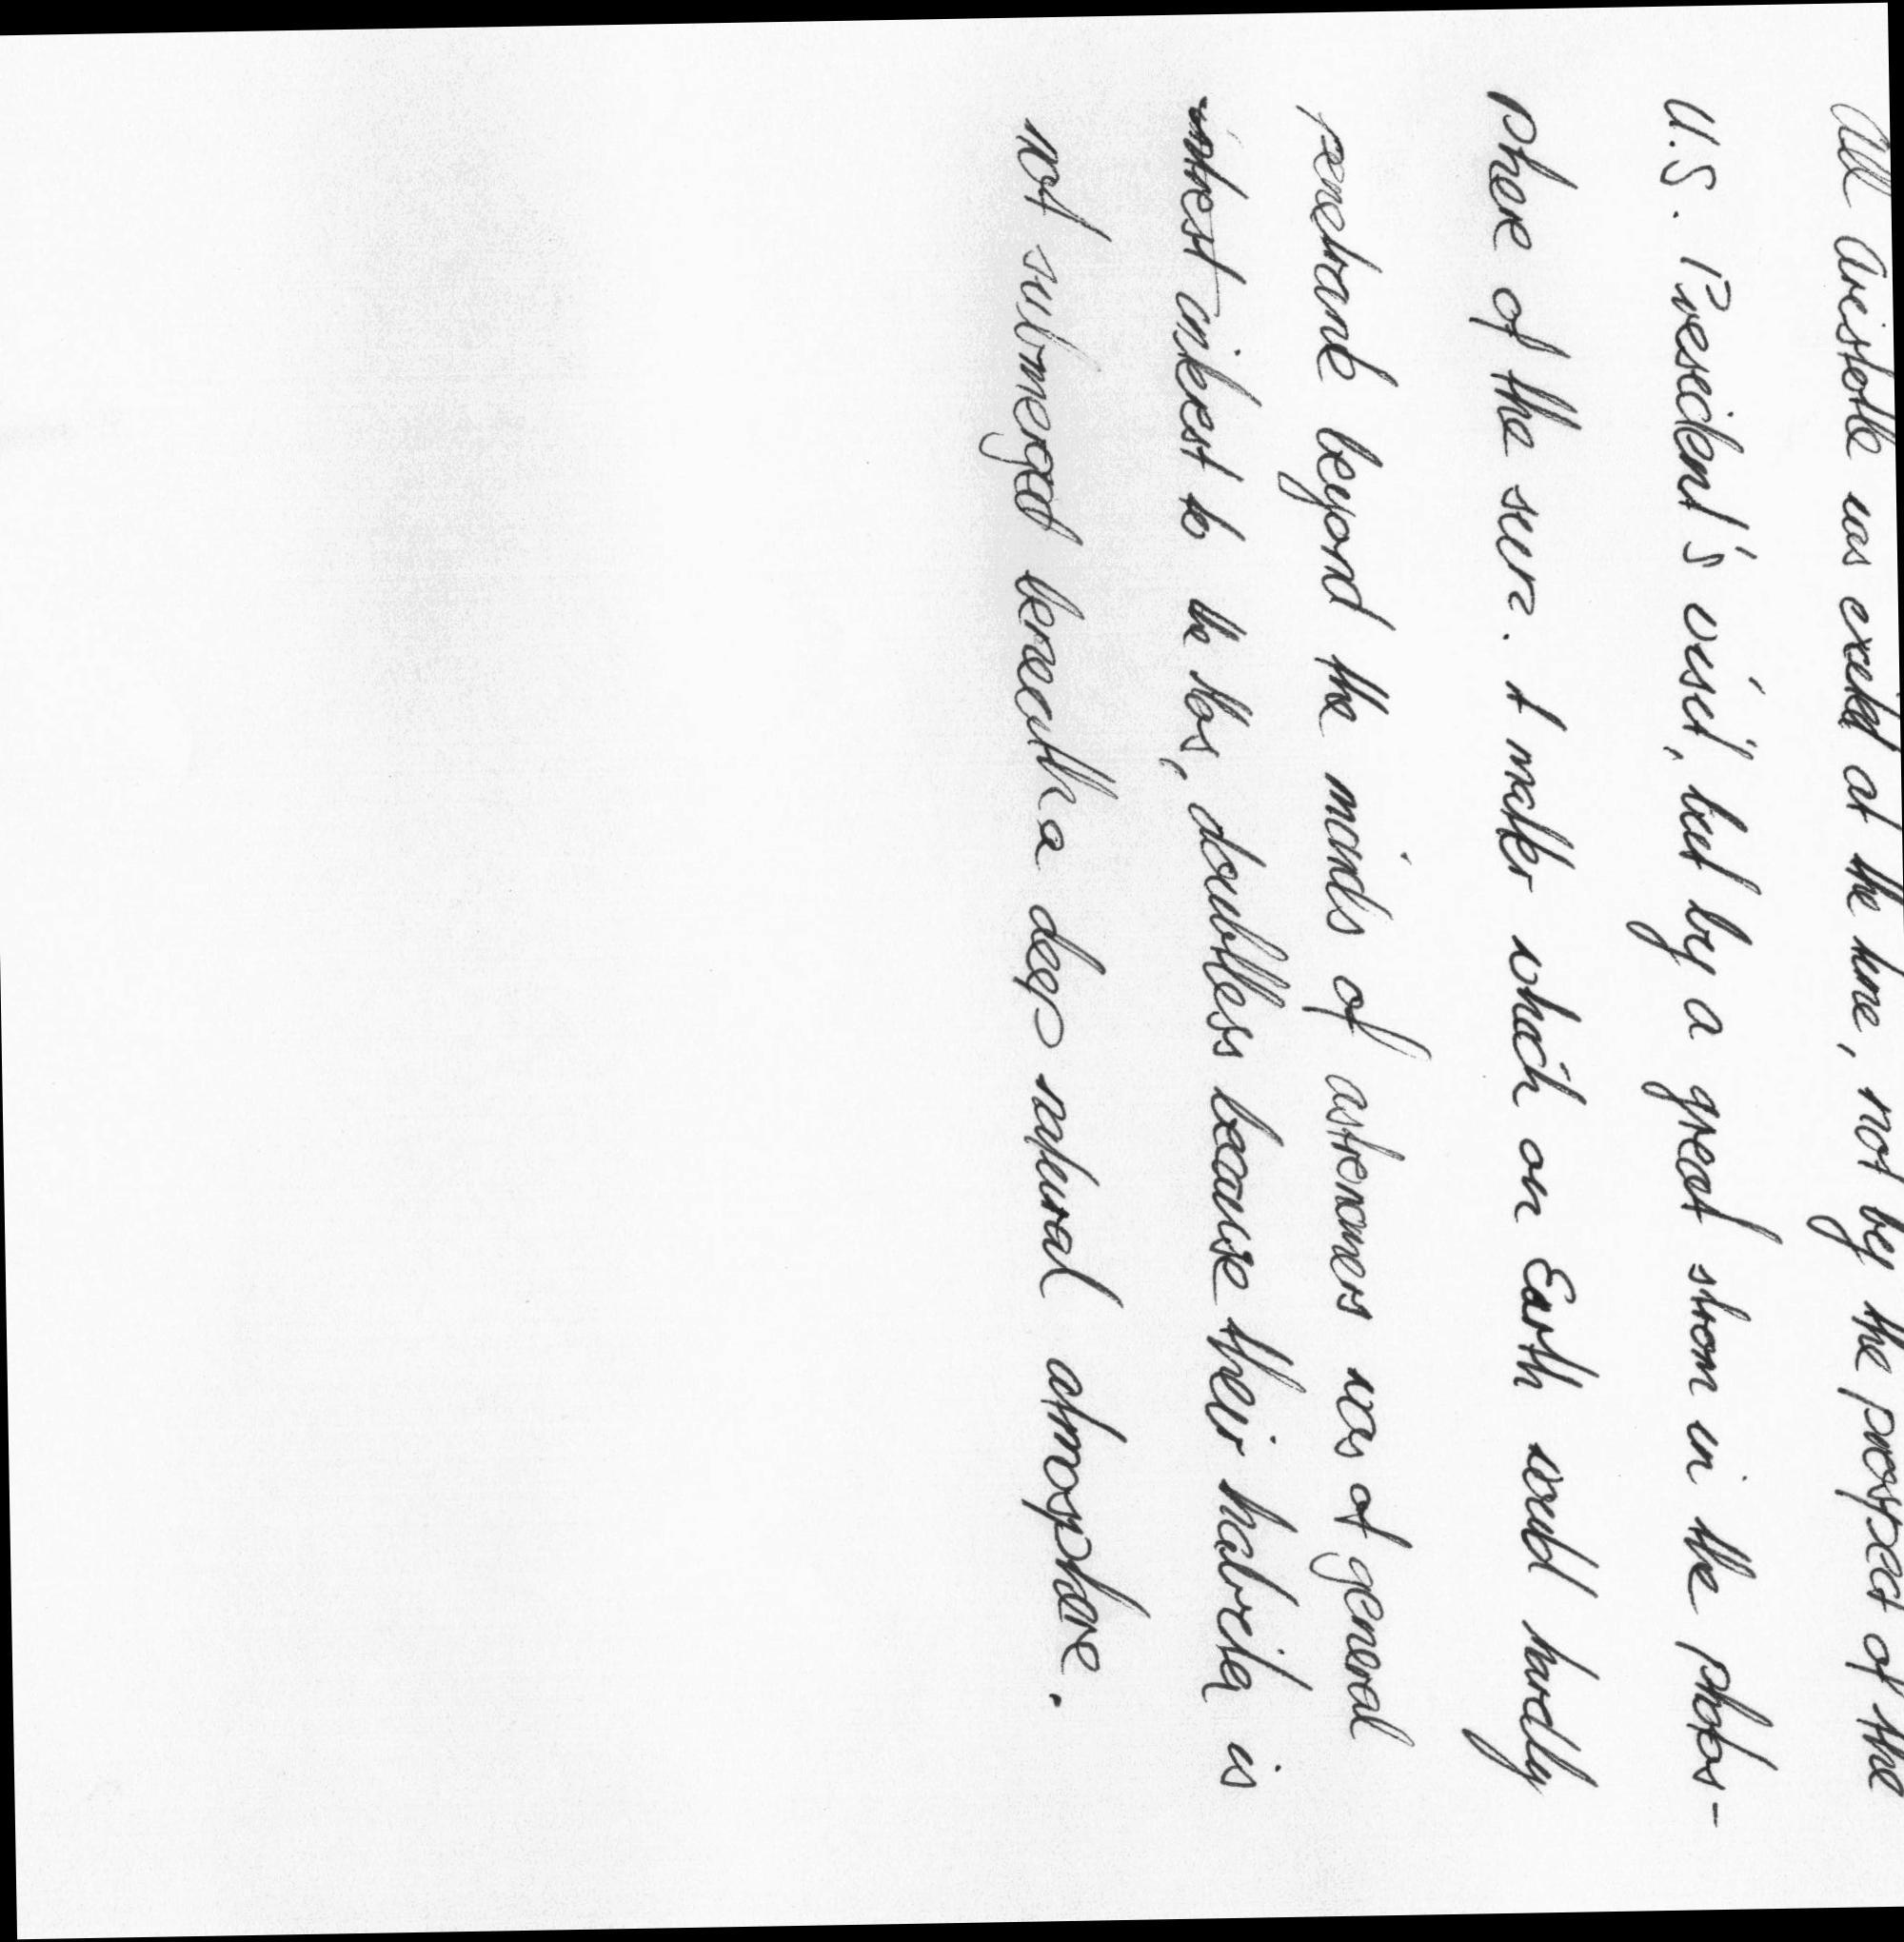 All Aristotle was excited at the time, not by the prospect of the
U.S. President's visit, but by a great strom in the photos-
phere of the sun. A matter which on Earth would hardly
penetrate beyond the minds of astronomers was of general
intrest interest to the Hos, doubtless because their habitat is
not submerged beneath a deep natural atmosphere.